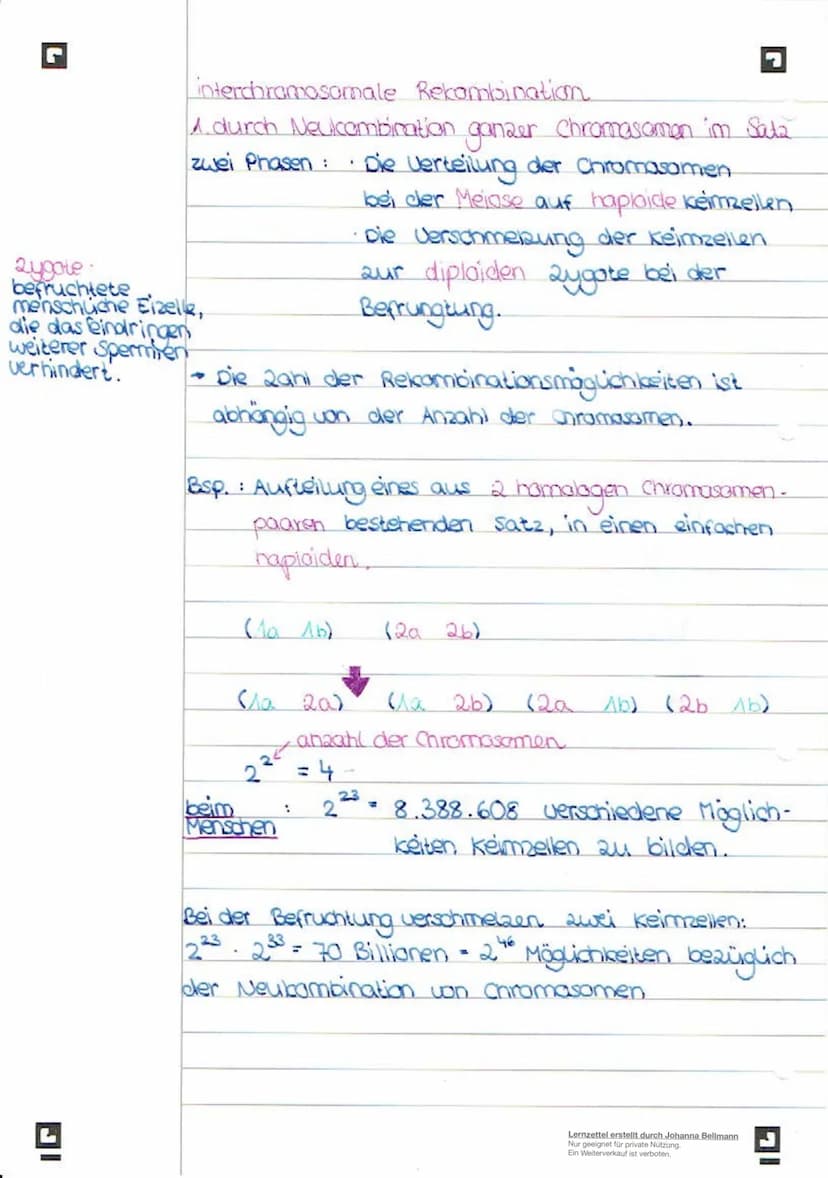 interchromosomale Rekombination
1. durch Neukombination ganzer Chromosomen im Satz
zwei Phasen : · Die Verteilung der Chromosomen
bei der Meiose auf haploide Keimzellen
· Die Verschmelzung der Keimzellen
zur diploiden Zygote bei der
Befrungtung.
Zygote -
befruchtete
menschliche Eizelle,
die das Eindringen
weiterer Spermien
verhindert.
→ Die Zahl der Rekombinationsmöglichkeiten ist
abhängig von der Anzahl der Chromosomen.
Bsp. : Aufteilung eines aus 2 homologen Chromosomen-
paaren bestehenden Satz, in einen einfachen
haploiden.
(1a 1b) (2a 2b)
(1a 2a) (1a 2b) (2a 1b) (2b 1b)
anzahl der Chromosomen
2² = 4
beim Menschen : 2²³ = 8.388.608 verschiedene Möglich-
keiten Keimzellen zu bilden.
Bei der Befruchtung verschmelzen zwei Keimzellen:
2²³ · 2³³ = 70 Billionen = 2⁴⁶ Möglichkeiten bezüglich
der Neukombination von Chromosomen
Lernzettel erstellt durch Johanna Bellmann
Nur geeignet für private Nutzung.
Ein Weiterverkauf ist verboten.